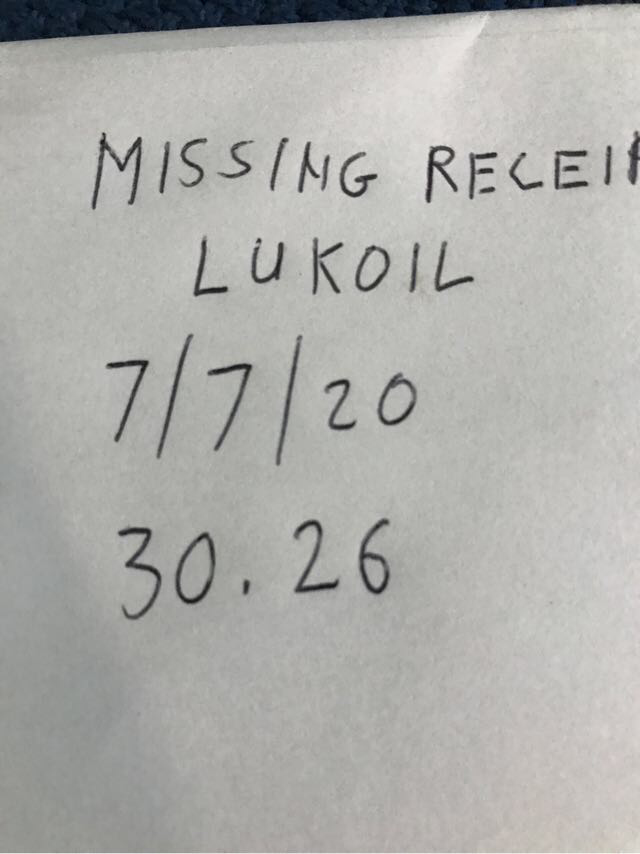 MISSING RECEI
LUKOIL
7/7/20
30.26